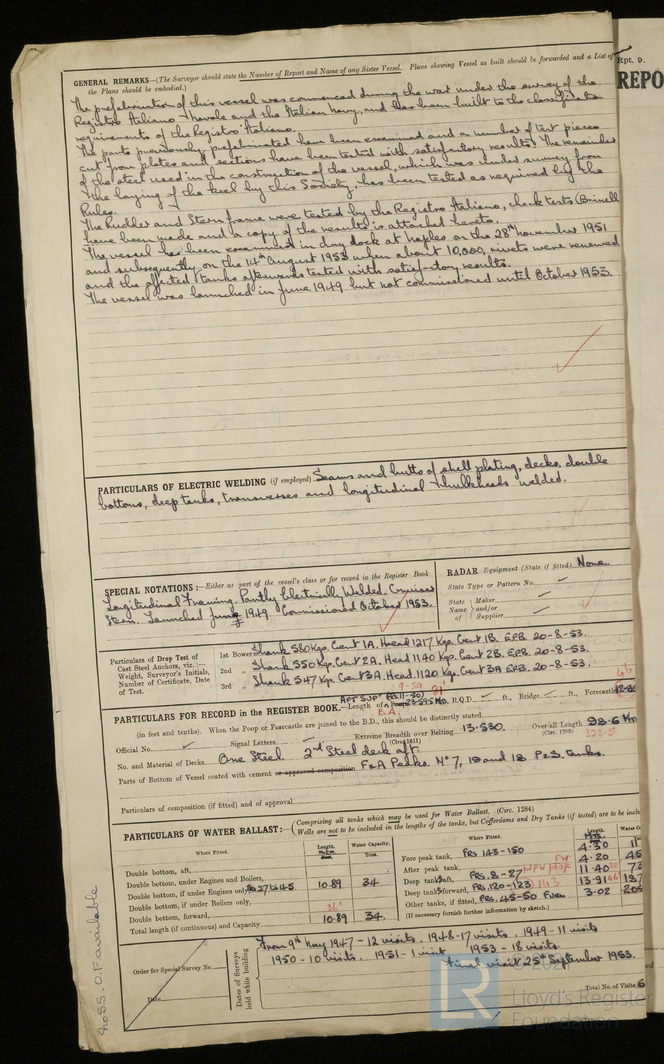 GENERAL REMARKS—(The Surveyor should state the Number of Report and Name of any Sister Vessel. Plans showing Vessel as built should be forwarded and a List of
the Plans should be embodied.)
The prefabrication of this vessel was commenced during the war under the survey of the
Registro Italiano Navale and the Italian Navy, and has been built to the classification
requirements of the Registro Italiano.
The parts previously prefabricated have been examined and a number of test pieces
cut from plates and sections have been tested with satisfactory results. The remainder
of the steel used in the construction of the vessel, which was under survey from
the laying of the keel by this Society, has been tested as required by the
Rules.
The Rudder and Stern frame were tested by the Registro Italiano, check tests (Brinell
have been made and a copy of the results is attached hereto.
The vessel has been examined in dry dock at Naples on the 28th November 1951
and subsequently on the 14th August 1953 when about 10,000 rivets were renewed
and the affected tanks afterwards tested with satisfactory results.
The vessel was launched in June 1949 but not commissioned until October 1953.
PARTICULARS OF ELECTRIC WELDING (if employed) Seams and butts of shell plating, decks, double
bottoms, deep tanks, transverses and longitudinal bulkheads welded.
SPECIAL NOTATIONS:—Either as part of the vessel's class or for record in the Register Book
Longitudinal Framing. Partly Electrically Welded. Cruiser
Stern. Launched June 1949. Commissioned October 1953.
RADAR Equipment (State if fitted) None
State Type or Pattern No.
State Name of Maker and/or Supplier
Particulars of Drop Test of
Cast Steel Anchors, viz.:—
Weight, Surveyor's Initials,
Number of Certificate, Date
of Test.
1st Bower Shank 580 Kgs. Cert 1A. Head 1217 Kgs. Cert 1B. E.F.B. 20-8-53.
2nd „ Shank 550 Kgs. Cert 2A. Head 1140 Kgs. Cert 2B. E.F.B. 20-8-53.
3rd „ Shank 547 Kgs. Cert 3A. Head 1120 Kgs. Cert 3A E.F.B. 20-8-53.
PARTICULARS FOR RECORD in the REGISTER BOOK.—Length of Poop 23.595 Mn R.Q.D. ft., Bridge ft., Forecastle
(in feet and tenths). When the Poop or Forecastle are joined to the B.D., this should be distinctly stated
Official No. Signal Letters Extreme Breadth over Belting 13.530 Over-all Length 98.6 Mn
(Circ. 1611) (Circ. 1703) 323.5
No. and Material of Decks One Steel 2nd Steel deck aft.
Parts of Bottom of Vessel coated with cement or approved composition F & A Peaks. No 7, 10 and 18 P&S. tanks.
Particulars of composition (if fitted) and of approval
PARTICULARS OF WATER BALLAST:— (Comprising all tanks which may be used for Water Ballast. (Circ. 1284)
Wells are not to be included in the lengths of the tanks, but Cofferdams and Dry Tanks (if tested) are to be inclu
Where Fitted. Length. Water Capacity. Tons.
Double bottom, aft,
Double bottom, under Engines and Boilers,
Double bottom, if under Engines only, Frs 27 to 45 10.89 34
Double bottom, if under Boilers only,
Double bottom, forward,
Total length (if continuous) and Capacity 10.89 34.
Where Fitted. Length. Water C
Fore peak tank, Frs 143-150 4.30 11
After peak tank, FW 4.20 45
Deep tank aft, Frs. 8-27 11.40 73
Deep tank forward, Frs. 120-123 13.91 187
Other tanks, if fitted, Frs. 45-50 3.02 205
(If necessary furnish further information by sketch.)
Order for Special Survey No.
Date
Dates of Surveys
held while building
From 9th May 1947 - 12 visits. 1948-17 visits. 1949-11 visits
1950-10 visits. 1951-1 visit 1953-18 visits.
Final visit 25th September 1953.
Total No. of Visits 6
Rpt. 9.
REPO
Lloyd's Register
Foundation